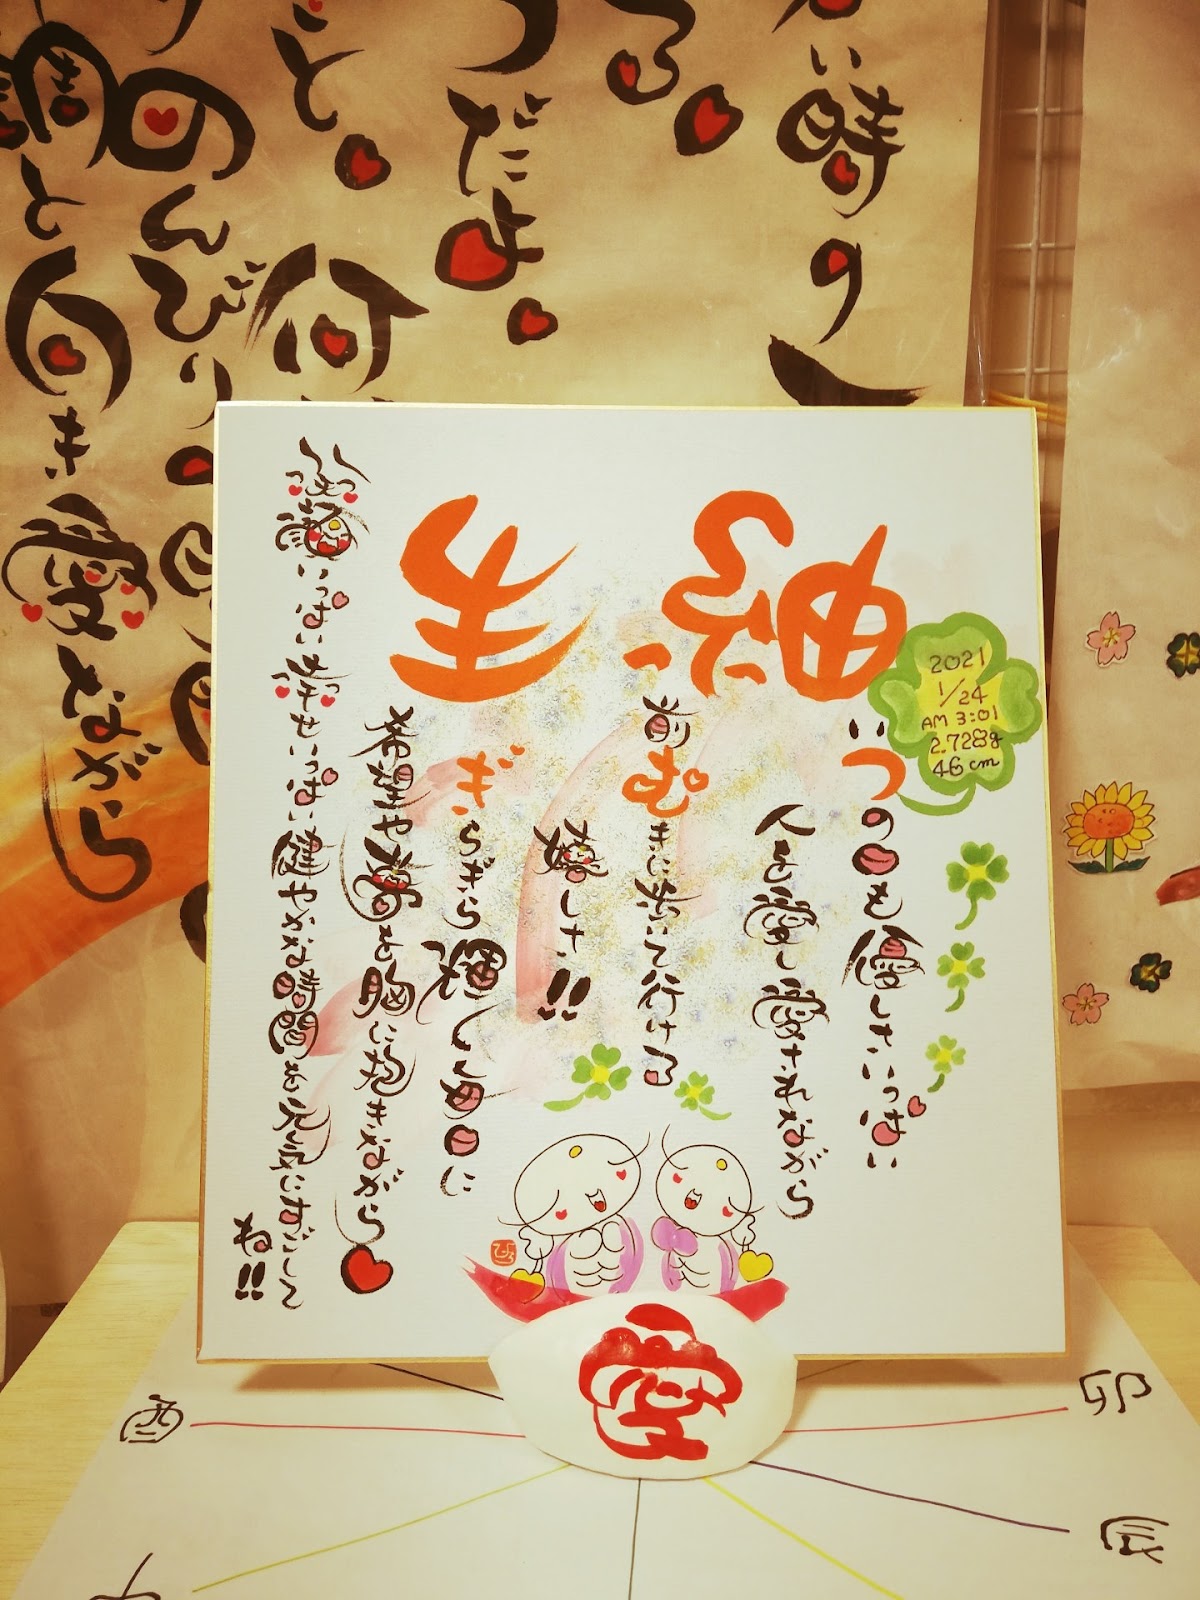 い時の
る
つだよ
こと
何
のんびり
調と向き愛ながら
紬生
2021
1/24
AM 3:01
2.728g
46cm
いつの日も優しさいっぱい
人を愛し愛されながら
前むきに歩いて行ける
嬉しさ!!
ぎらぎら輝く毎日に
希望や夢を胸に抱きながら
笑顔いっぱい幸せいっぱい健やかな時間を元気にすごして
ね!!
愛
酉
卯
辰